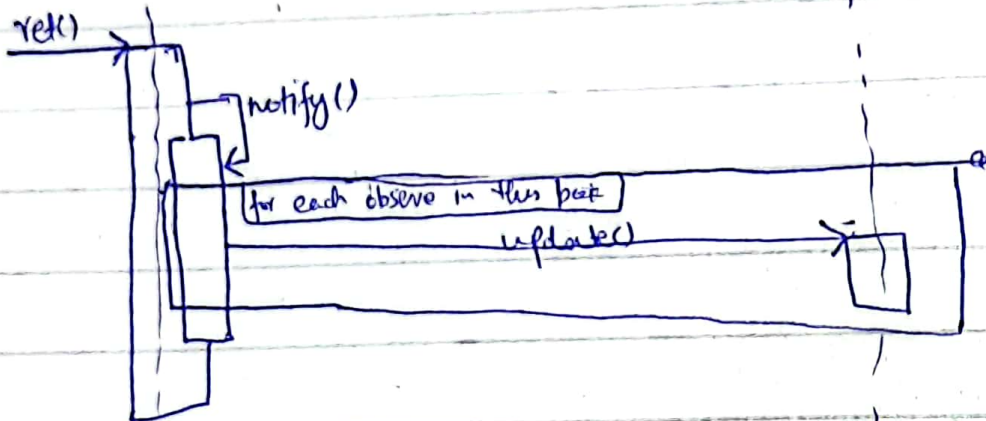 ret()
notify()
for each observe in this book
update()